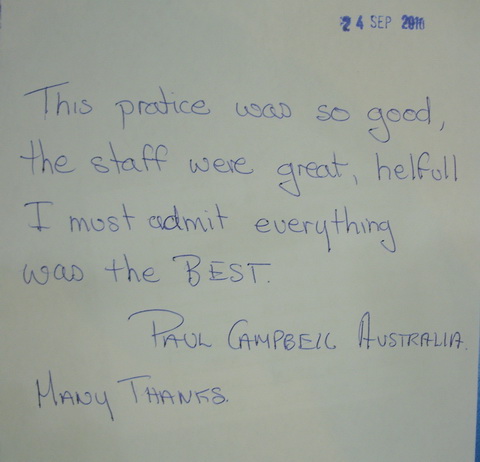 24 SEP 2010
This pratice was so good,
the staff were great, helfull
I must admit everything
was the BEST.
PAUL CAMPBELL AUSTRALIA.
MANY THANKS.